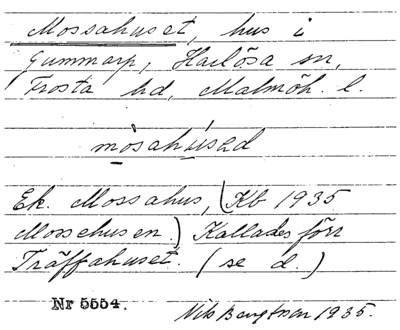 Mossahuset, hus i
Gummarp, Harlösa sn,
Frosta hd, Malmöh. l.
mosahúsad
Ek. Mossahus, (Kb 1935
Mossehusen.) Kallades förr
Träffahuset. (se d.)
Nr 5554.
Nils Bengtson 1935.